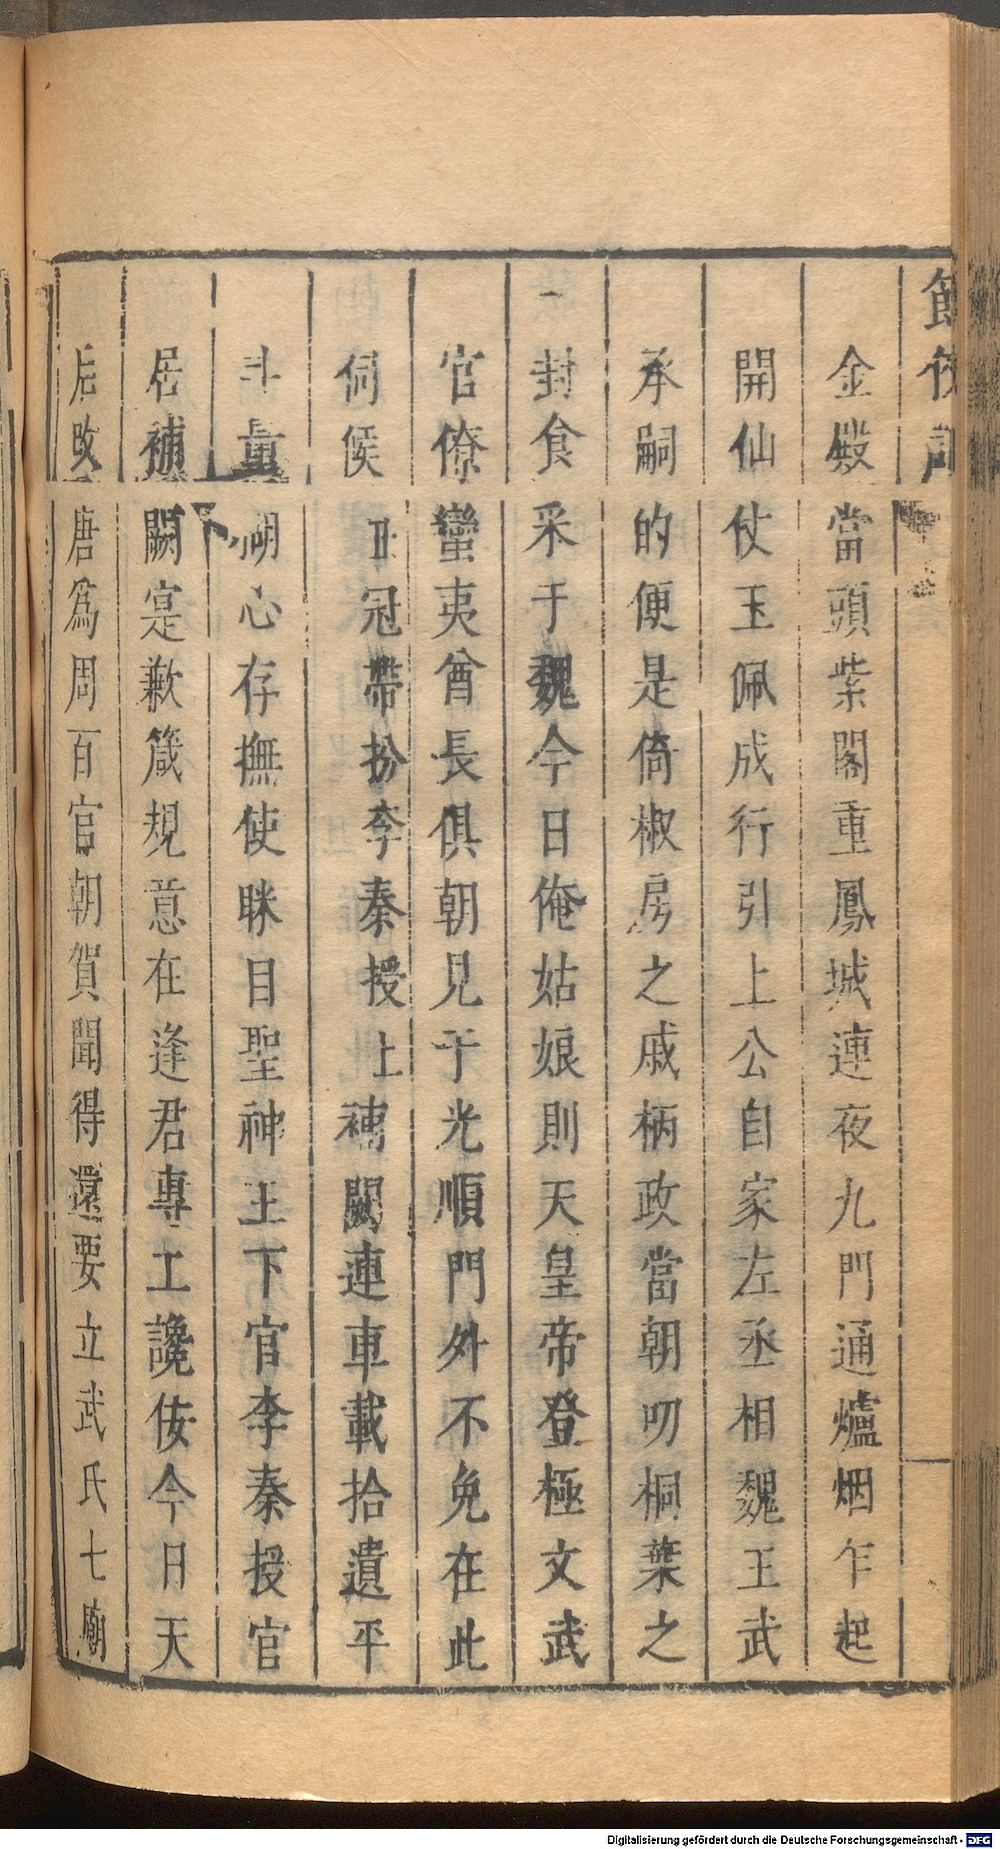 節俠記
金殿當頭紫閣重鳳城連夜九門通爐烟乍起
開仙仗玉珮成行引上公自家左丞相魏王武
承嗣的便是倚椒房之戚柄政當朝叨桐葉之
一封食采于魏今日俺姑娘則天皇帝登極文武
官僚蠻夷酋長俱朝見于光順門外不免在此
伺候 丑冠帶扮李秦授上 補闕連車載拾遺平
斗量 心存撫使眯目聖神王下官李秦授官
居補闕寔歉箴規意在逢君專工讒佞今日天
后改唐爲周百官朝賀聞得還要立武氏七廟
Digitalisierung gefördert durch die Deutsche Forschungsgemeinschaft - DFG